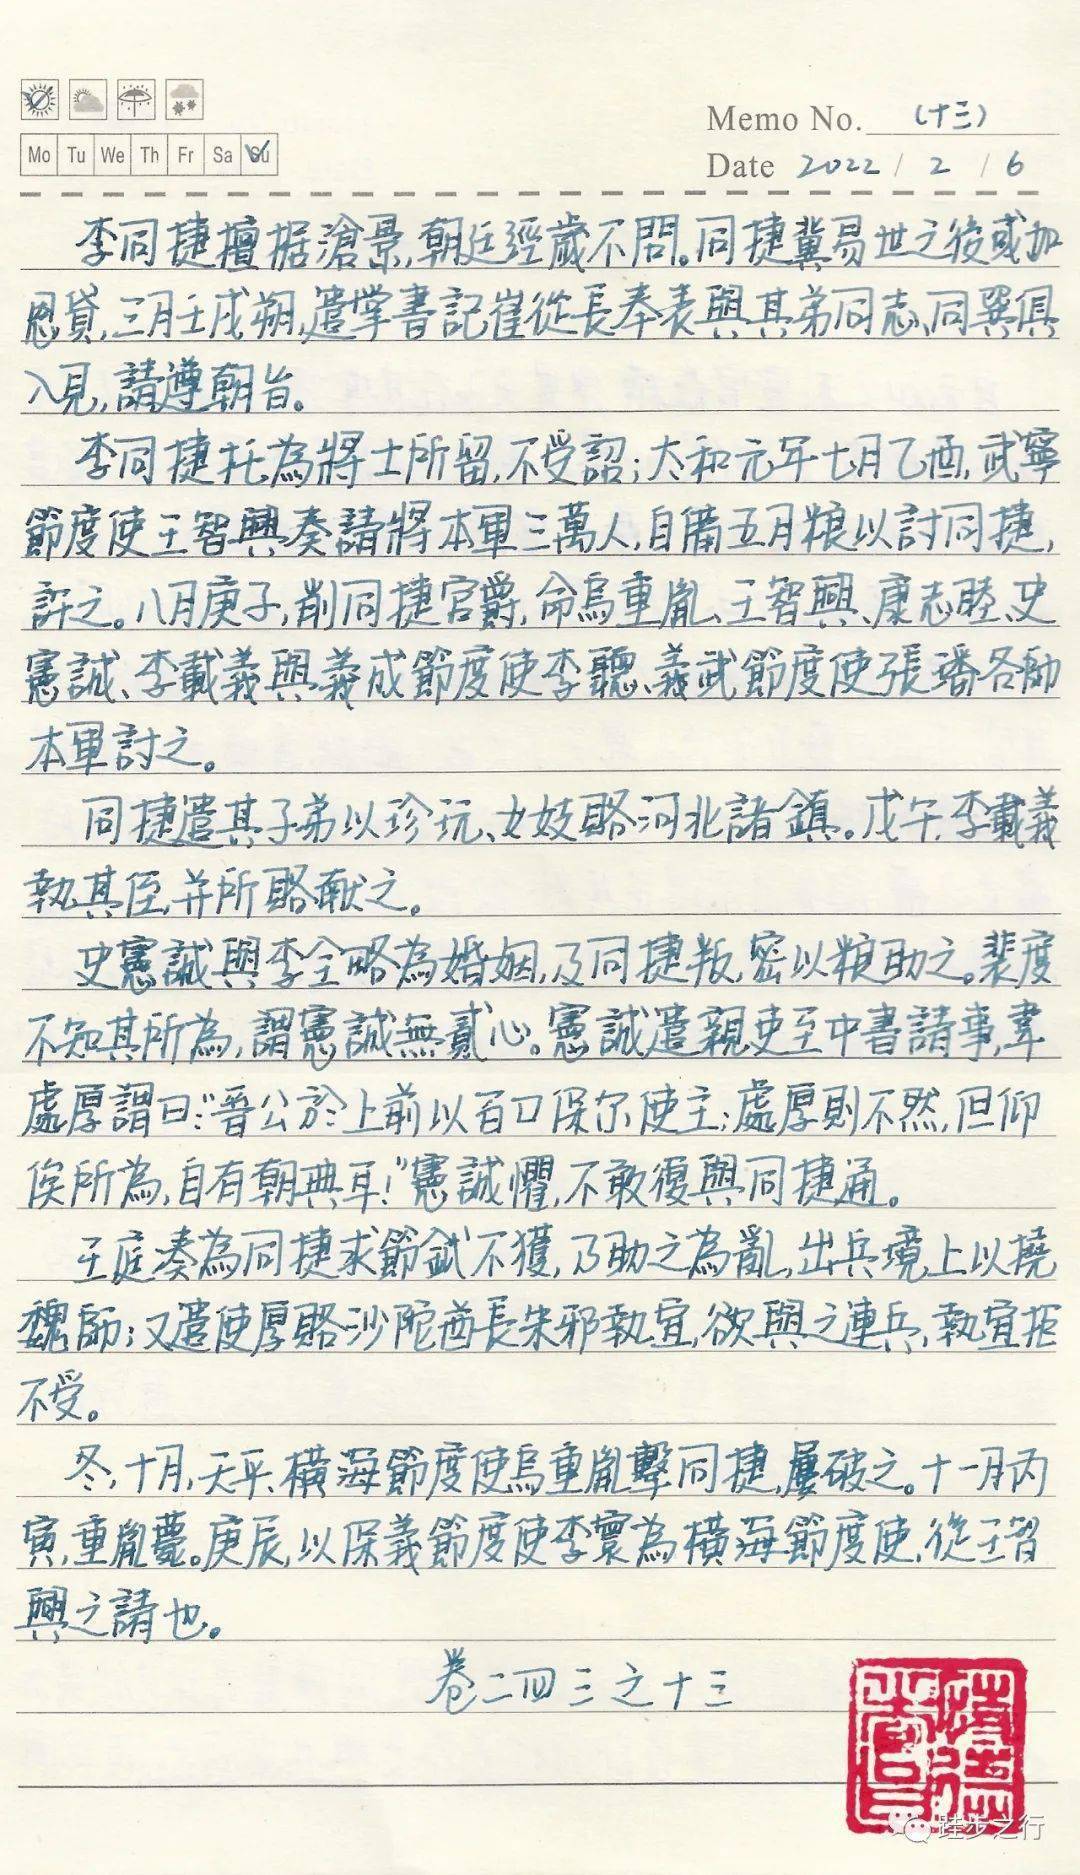 Memo No. (十三)
Mo Tu We Th Fr Sa Su
Date 2022 / 2 / 6
李同捷擅据滄景,朝廷經歲不問。同捷冀易世之後或加
恩貸,三月壬戌朔,遣掌書記崔從長奉表與其弟同志、同巽俱
入見,請遵朝旨。
李同捷托為將士所留,不受詔;太和元年七月乙酉,武寧
節度使王智興奏請將本軍三萬人,自備五月粮以討同捷,
許之。八月庚子,削同捷官爵,命烏重胤、王智興、康志睦、史
憲誠、李載義與義成節度使李聽、義武節度使張璠各帥
本軍討之。
同捷遣其子弟以珍玩、女妓賂河北諸鎮。戊午,李載義
執其侄,并所賂献之。
史憲誠與李全略為婚姻,及同捷叛,密以粮助之。裴度
不知其所為,謂憲誠無貳心。憲誠遣親吏至中書請事,韋
處厚謂曰:“晋公於上前以百口保尔使主;處厚則不然,但仰
俟所為,自有朝典耳!”憲誠懼,不敢復與同捷通。
王庭湊為同捷求節鉞不獲,乃助之為亂,出兵境上以撓
魏師;又遣使厚賂沙陀酋長朱邪執宜,欲與之連兵,執宜拒
不受。
冬,十月,天平、橫海節度使烏重胤擊同捷,屢破之。十一月丙
寅,重胤薨。庚辰,以保義節度使李寰為橫海節度使,從王智
興之請也。
卷二四三之十三
跬步之行